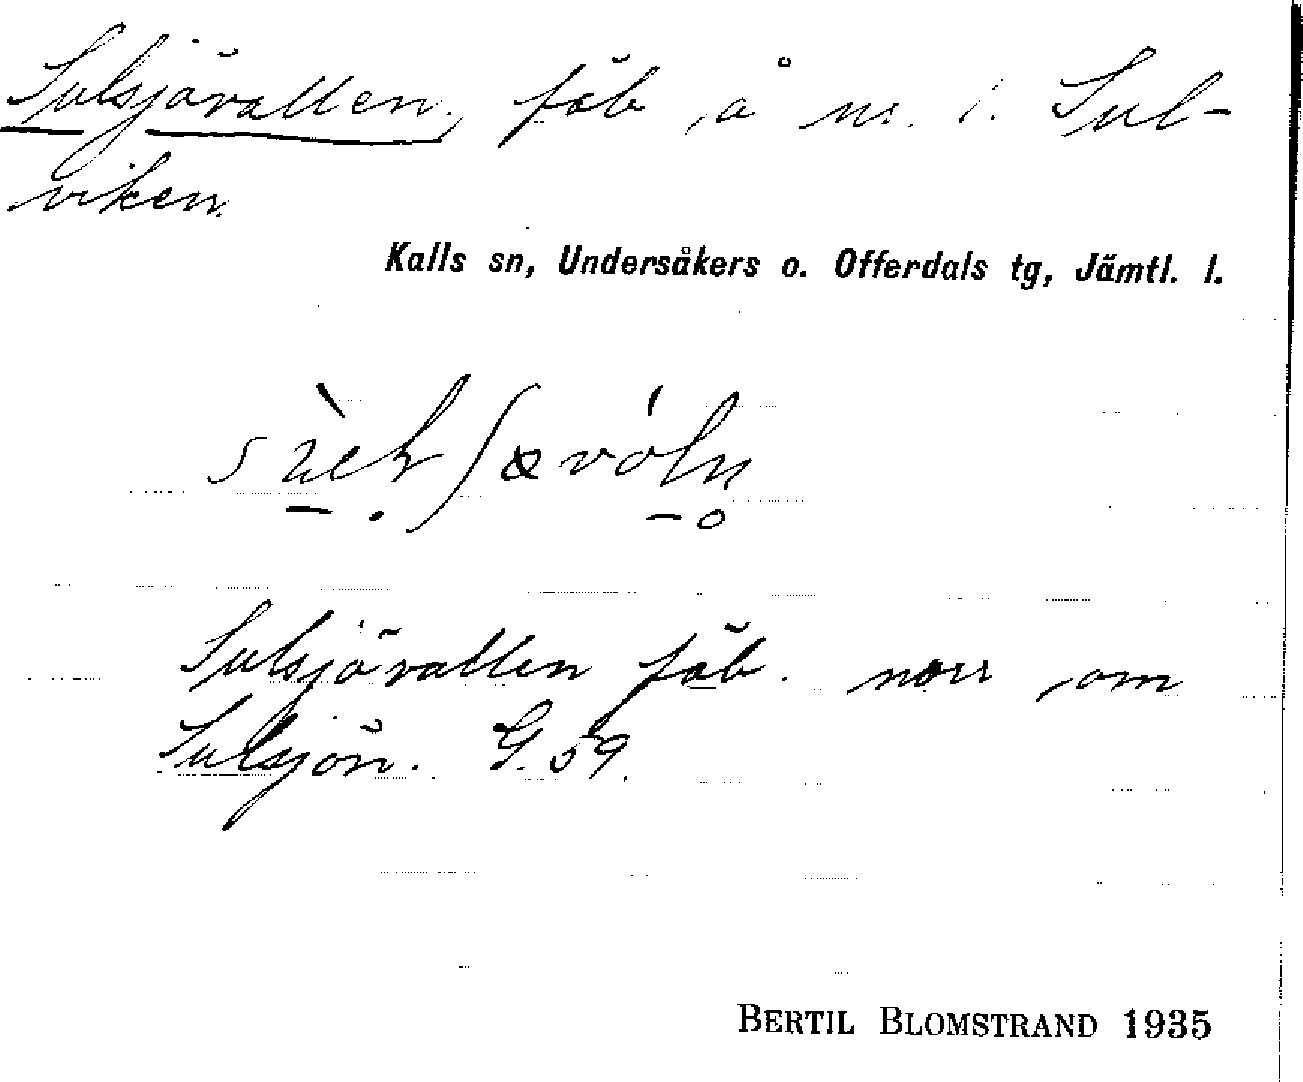 Sulsjövallen, fäb å nr. 1. Sul-
viken.
Kalls sn, Undersåkers o. Offerdals tg, Jämtl. l.
Sulsjövallen fäb. norr om
Sulsjön. G. 59.
BERTIL BLOMSTRAND 1935